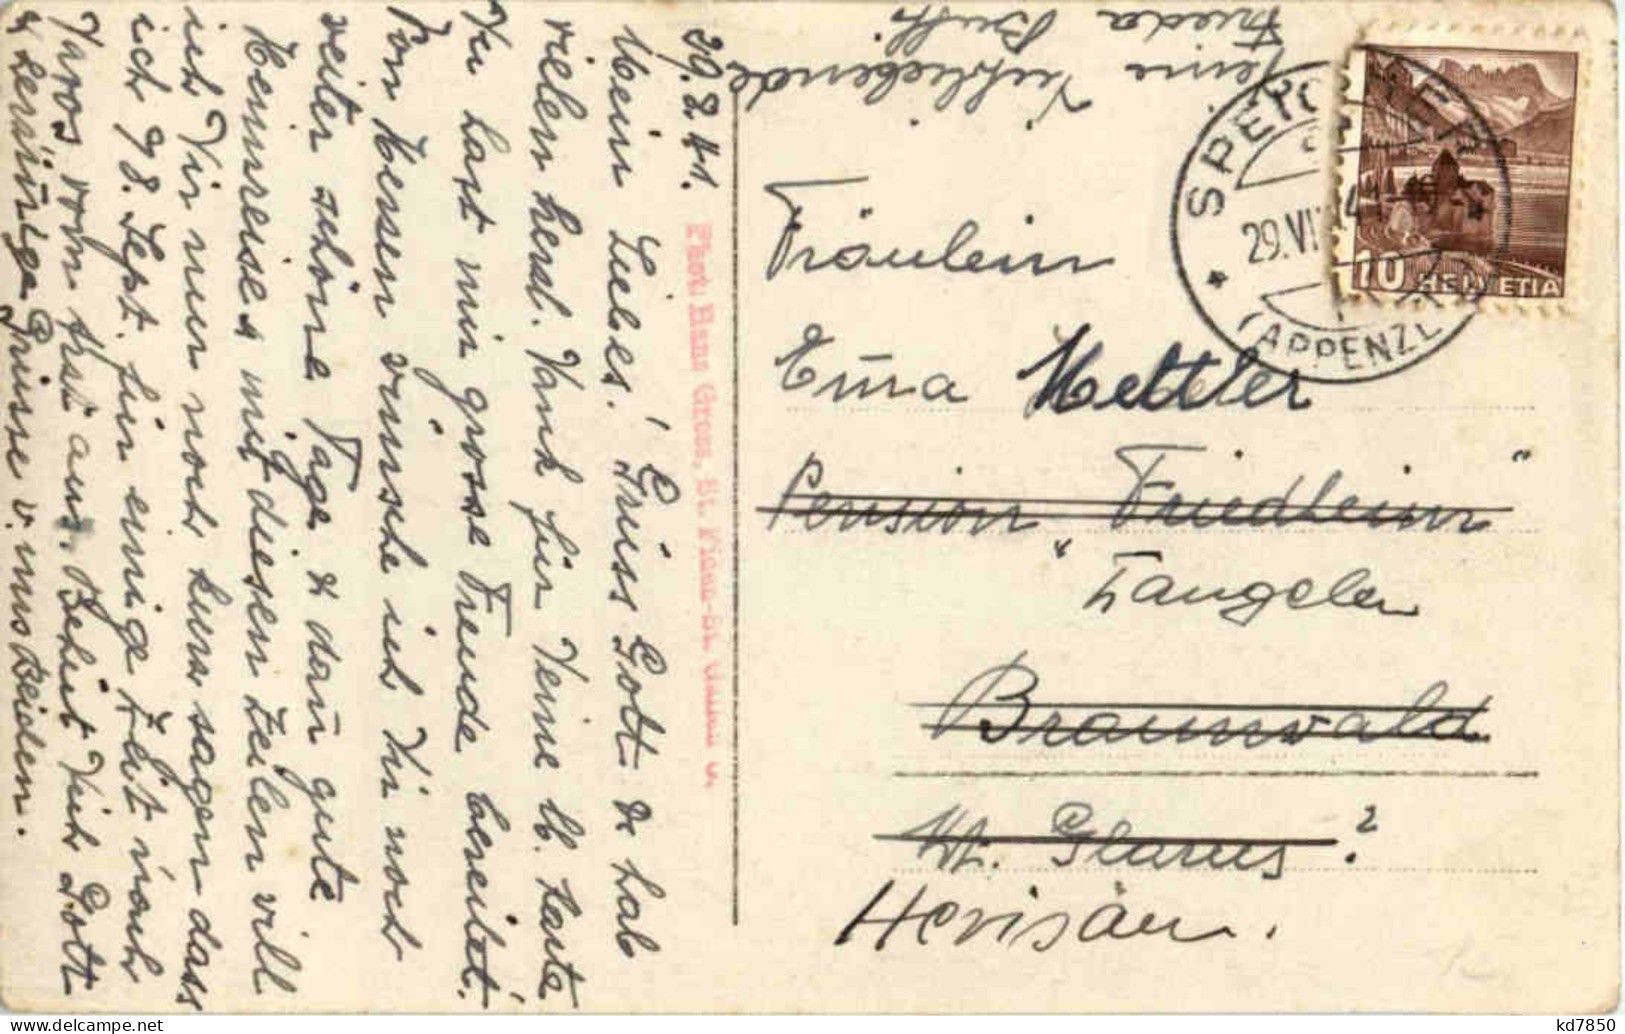 29.8.41.
Mein Liebes! Grüss Gott & hab
vielen herzl. Dank für Deine lb. Karte
Du hast mir grosse Freude bereitet.
Von Herzen wünsche ich Dir noch
weiter schöne Tage & dann gute
Heimreise & mit diesen Zeilen will
ich Dir nur noch kurz sagen dass
ich 98. Sept. für einige Zeit nach
Davos vom Arzt aus. Behüt Dich Gott
& herzinnige Grüsse v. uns beiden.
Deine
Dichliebende
Frieda
Phot: Hans Gross, St. Fiden-St. Gallen O.
SPEICHER
29.VIII.41
(APPENZELL)
10 HELVETIA
Fräulein
Erna Mettler
Pension „Friedheim"
Braunwald
Kt. Glarus ?
Herisau.
kd7850